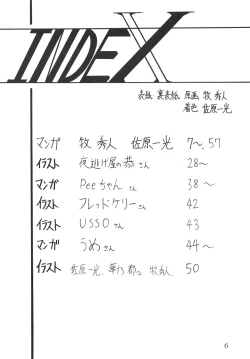 INDEX
表紙 裏表紙 原画 牧 秀人
着色 佐原一光
マンガ 牧 秀人 佐原一光 7〜、57
イラスト 夜逃げ屋の恭さん 28〜
マンガ Peeちゃんさん 38〜
イラスト フレッドケリーさん 42
イラスト USSOさん 43
マンガ うめさん 44〜
イラスト 佐原一光、華乃 郡、牧秀人、 50
6